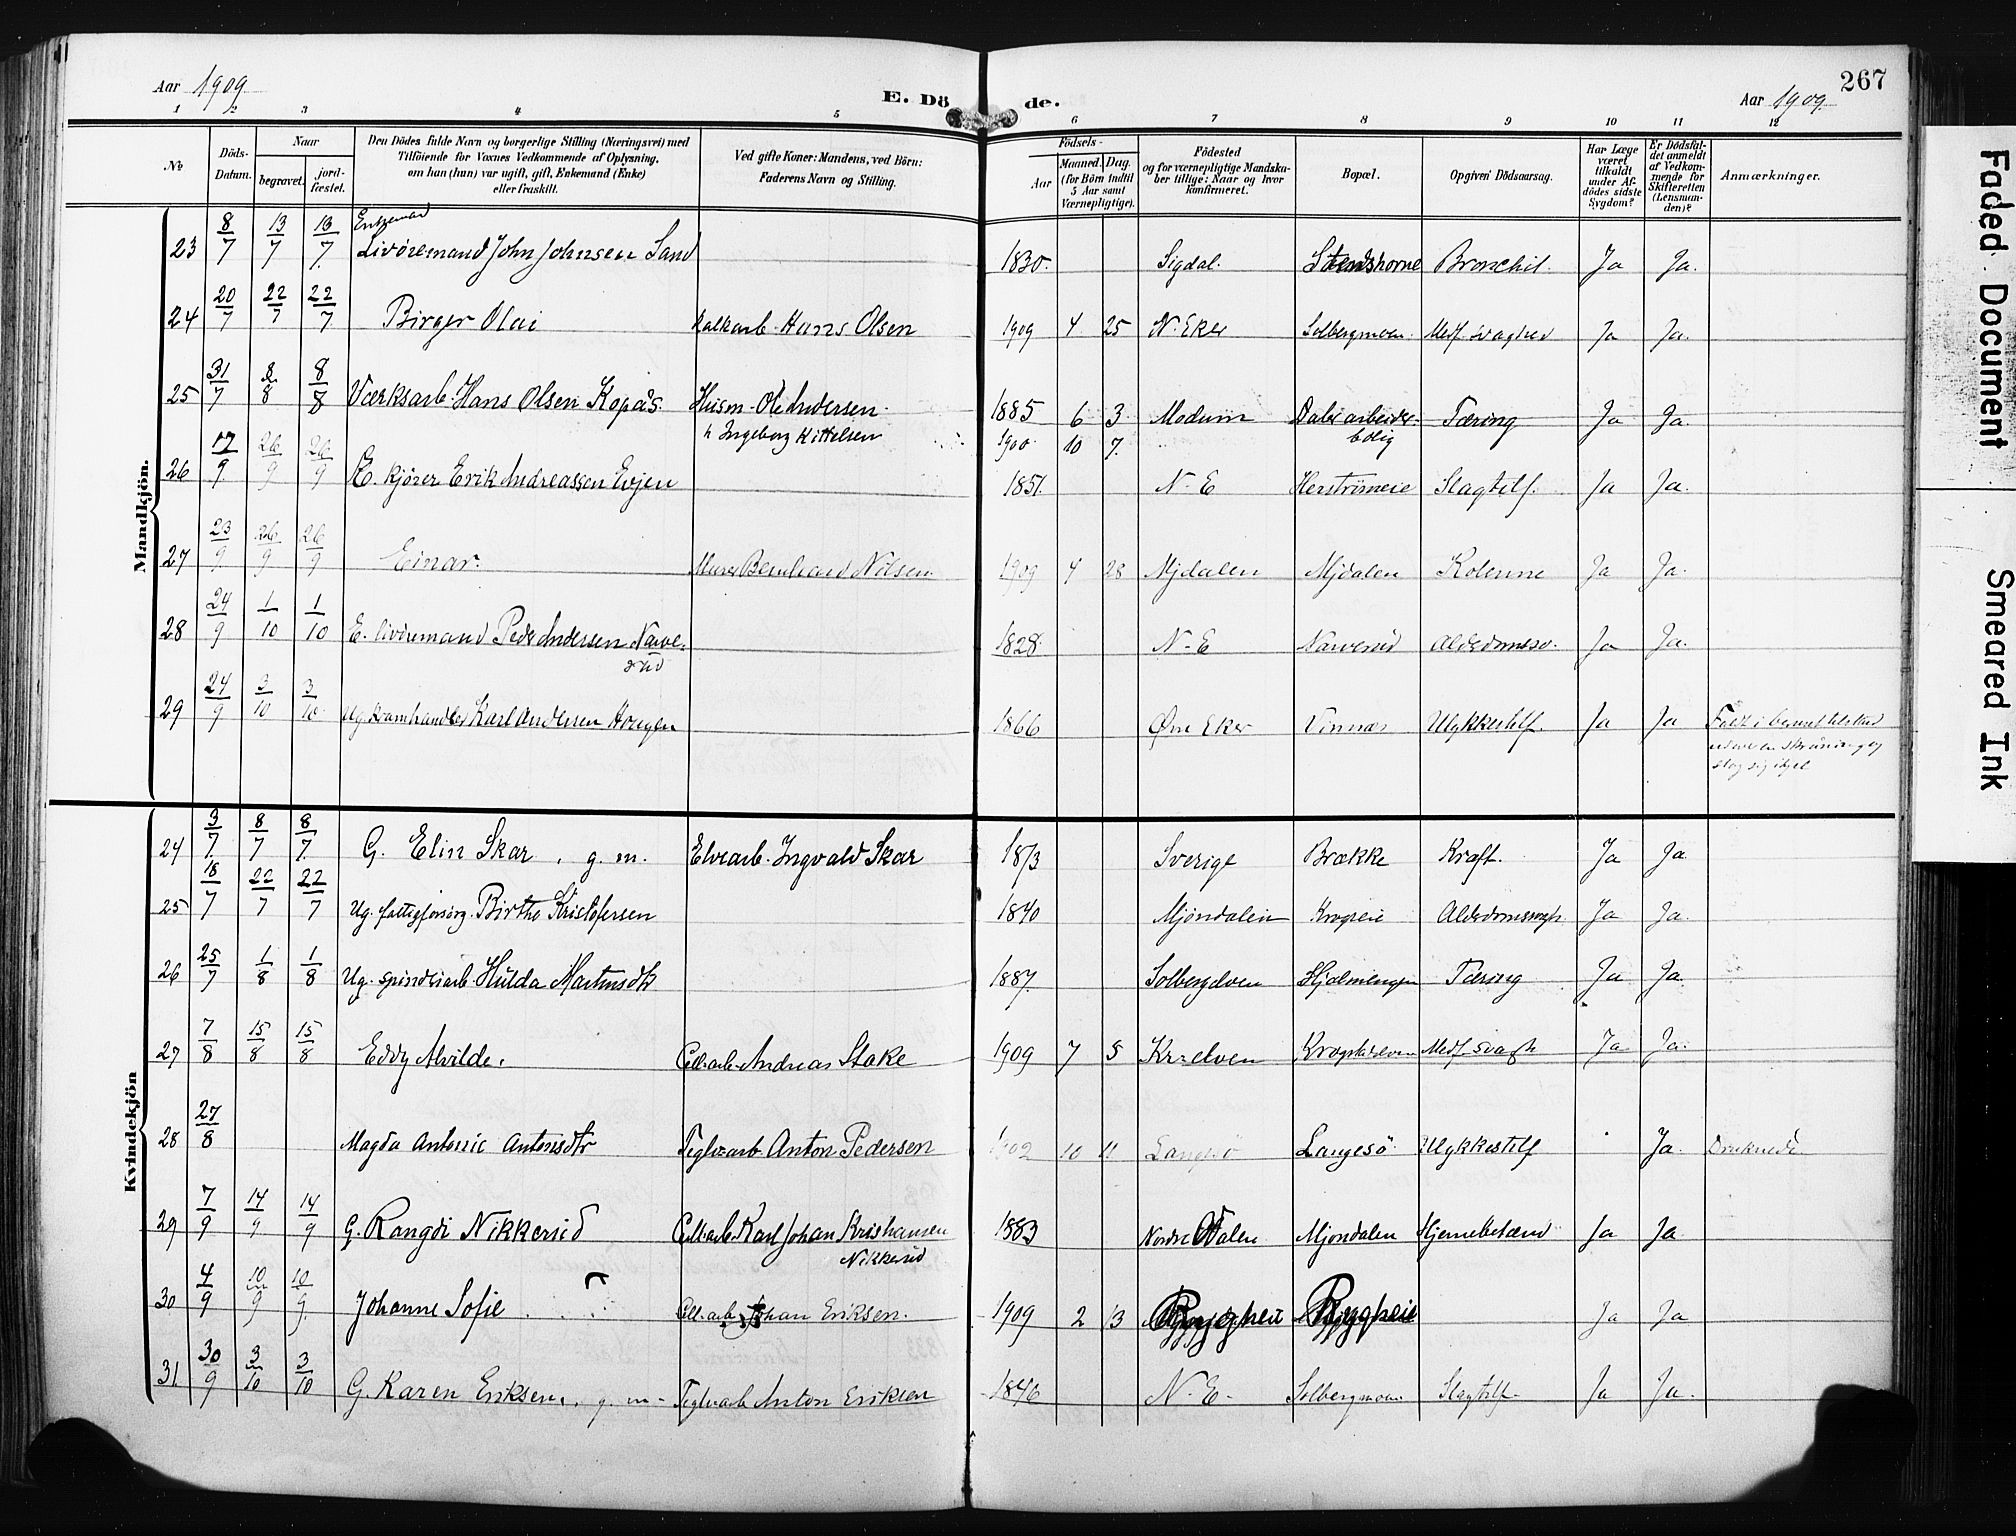 Aar 1909
E. Döde.
Aar 1909.
267
1 2 3 4 5 6 7 8 9 10 11 12
No
Döds-Datum.
Naar
begravet.
jord-fæstet.
Den Dödes fulde Navn og borgerlige Stilling (Næringsvei) med
Tilföiende for Voxnes Vedkommende af Oplysning,
om han (hun) var ugift, gift, Enkemand (Enke)
eller fraskilt.
Ved gifte Koner: Mandens, ved Börn:
Faderens Navn og Stilling.
Födsels-
Aar
Maaned. Dag.
(for Börn indtil
5 Aar samt
Værnepligtige).
Födested
og for værnepligtige Mandska-
ber tillige: Naar og hvor
konfirmeret.
Bopæl.
Opgiven Dödsaarsag.
Har Læge
været
tilkaldt
under Af-
dödes sidste
Sygdom?
Er Dödsfal-
det anmeldt
af Vedkom-
mende for
Skifteretten
(Lensman-
den)?
Anmærkninger.
Mandkjön.
23 8/7 13/7 13/7 Enkemand Livöremand John Johnsen Sand 1830. Sigdal. Bronchit. Ja Ja.
24 20/7 22/7 22/7 Birger Olai Kalkarb. Hans Olsen 1909 4 25 N. Eker Solbergmoen. Medf. svaghed Ja Ja.
25 31/7 8/8 8/8 Værksarb. Hans Olsen Kopås. Husm. Ole Andersen. 1885 6 3 Modum arbeider- Tæring Ja Ja
h Ingeborg Kittelsen 1900 10 7. bolig
26 17/9 26/9 26/9 E. kjörer Erik Andreassen Evjen 1851. N. E Slagtilf. Ja Ja.
27 23/9 26/9 26/9 Einar. Murer Bernhard Nilsen. 1909 4 28 Mjdalen Mjdalen Kolerine Ja Ja.
28 24/9 1/10 1/10 E. livöremand Peder Andersen Narve- 1828. N. E Narverud Alderdomssv. Ja Ja.
rud
29 24/9 3/10 3/10 Ug. Kramhandler Karl Andersen Hougen 1866 Övre Eker Vinnæs Ulykkestilf. Ja Ja Faldt i beruset tilstand
udover en skråning og
slog sig ihjel
Kvindekjön
24 3/7 8/7 8/7. G. Elin Skar, g. m. Elvearb. Ingvald Skar 1873 Sverige Brække Kræft. Ja Ja
25 18/7 22/7 22/7 Ug. fattigforsörg. Birthe Kristofersen 1840 Mjöndalen Krogseie Ja Ja.
26 25/7 1/8 1/8 Ug. spinderiarb. Hulda Martinsdtr 1887. Solbergelven Hjelmengen Tæring Ja Ja.
27 7/8 15/8 15/8 Eddy Alvilde. Cell.arb. Andreas Stake 1909 7 5 Kr-elven Medf. svagh Ja Ja.
28 27/8 Magda Antonie Antonsdtr Teglv.arb. Anton Pedersen 1902 10 11 Langesö Langesö Ulykkestilf Ja. Druknede
29 7/9 14/9 14/9 G. Rangdi Nikkerud Cell.arb. Karl Johan Kristiansen 1883 Nordre Dalen Mjöndalen Hjernebetænd Ja Ja.
Nikkerud
30 4/9 10/9 10/9. Johanne Sofie Cell.arb. Johan Eriksen. 1909 2 13 Ryggheie Ryggheie Ja Ja
31 30/9 3/10 3/10 G. Karen Eriksen, g. m- Teglv.arb Anton Eriksen 1846 N. E. Solbergmoen Slagtilf. Ja Ja.
Faded Document
Smeared Ink